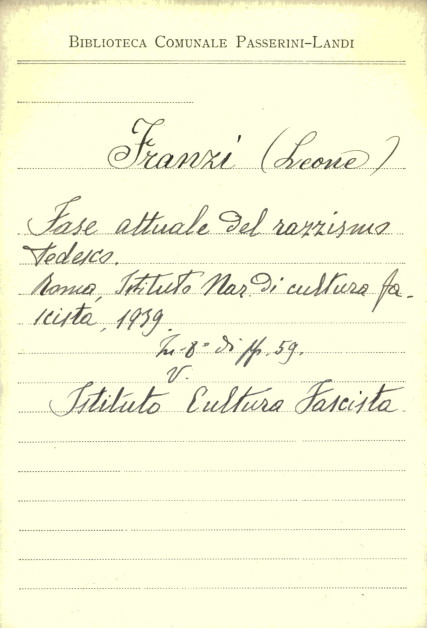 BIBLIOTECA COMUNALE PASSERINI-LANDI
Franzi (Leone)
Fase attuale del razzismo
tedesco.
Roma, Istituto Naz. di cultura fa-
scista, 1939.
In-8° di pp. 59.
V.
Istituto Cultura Fascista.